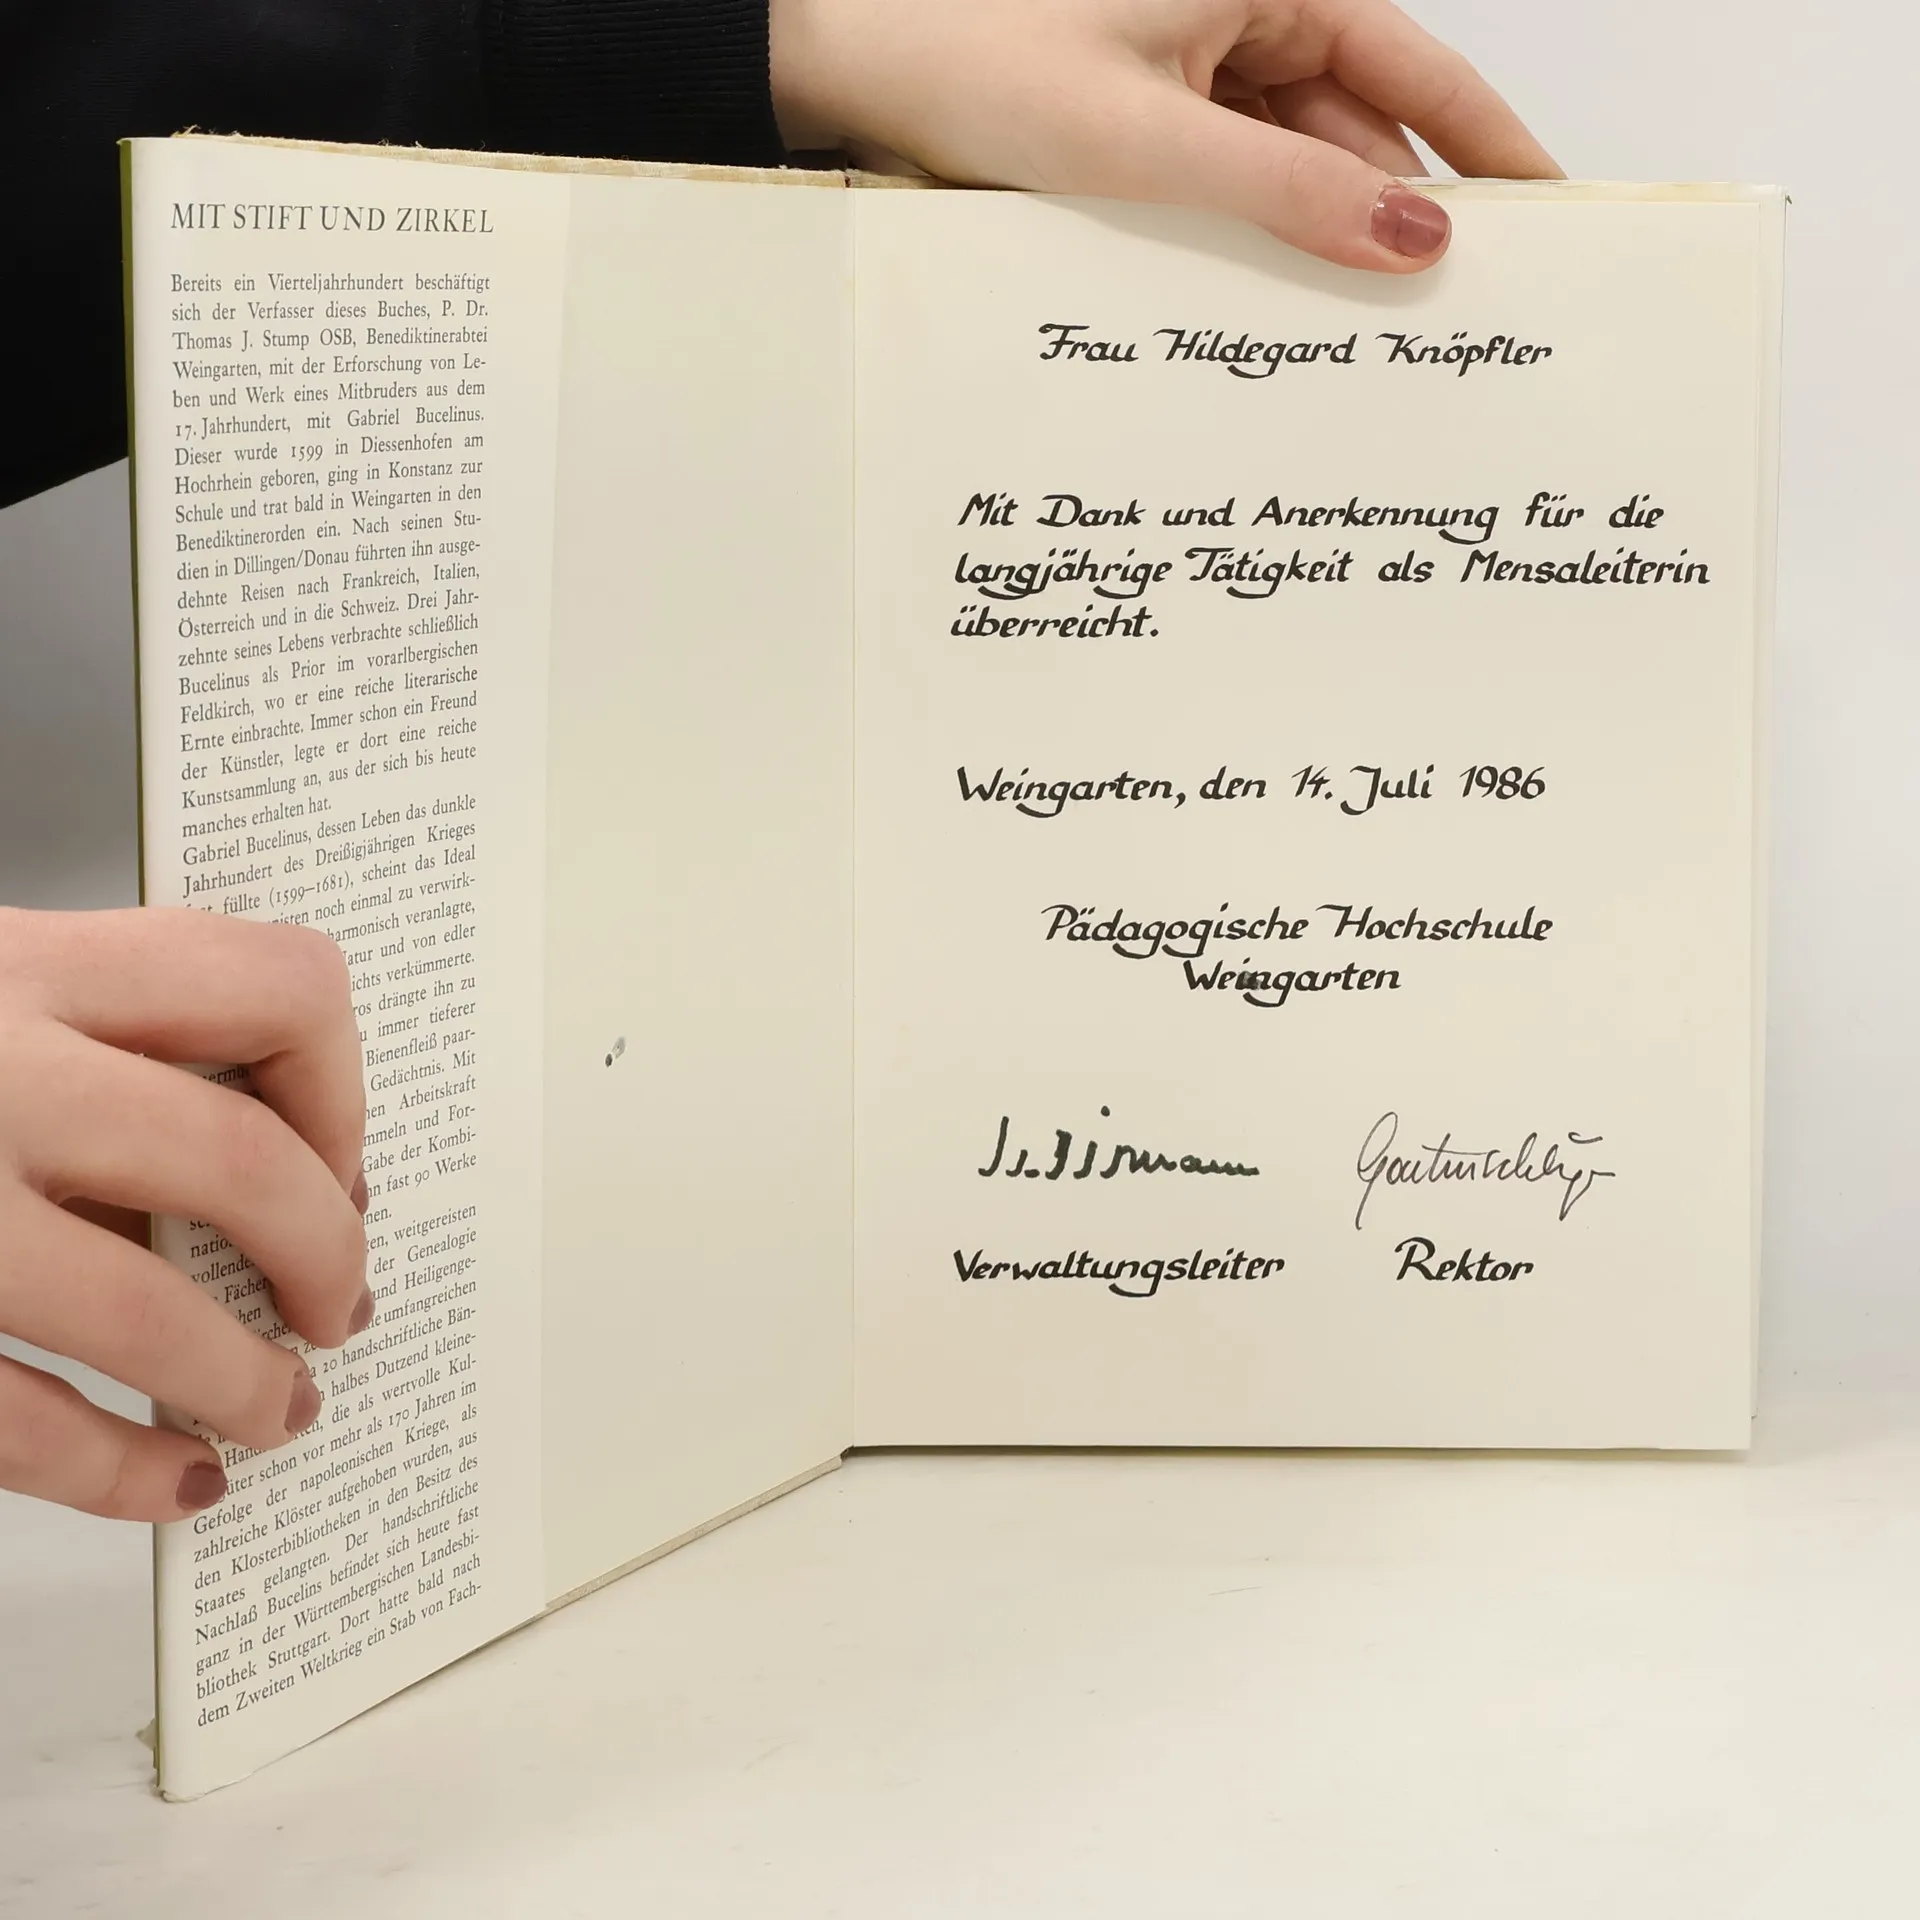 MIT STIFT UND ZIRKEL
Bereits ein Vierteljahrhundert beschäftigt
sich der Verfasser dieses Buches, P. Dr.
Thomas J. Stump OSB, Benediktinerabtei
Weingarten, mit der Erforschung von Le-
ben und Werk eines Mitbruders aus dem
17. Jahrhundert, mit Gabriel Bucelinus.
Dieser wurde 1599 in Diessenhofen am
Hochrhein geboren, ging in Konstanz zur
Schule und trat bald in Weingarten in den
Benediktinerorden ein. Nach seinen Stu-
dien in Dillingen/Donau führten ihn ausge-
dehnte Reisen nach Frankreich, Italien,
Österreich und in die Schweiz. Drei Jahr-
zehnte seines Lebens verbrachte schließlich
Bucelinus als Prior im vorarlbergischen
Feldkirch, wo er eine reiche literarische
Ernte einbrachte. Immer schon ein Freund
der Künstler, legte er dort eine reiche
Kunstsammlung an, aus der sich bis heute
manches erhalten hat.
Gabriel Bucelinus, dessen Leben das dunkle
Jahrhundert des Dreißigjährigen Krieges
füllte (1599–1681), scheint das Ideal
noch einmal zu verwirk-
harmonisch veranlagte,
und von edler
verkümmerte.
drängte ihn zu
immer tieferer
Bienenfleiß paar-
Gedächtnis. Mit
Arbeitskraft
und For-
Gabe der Kombi-
fast 90 Werke
weitgereisten
der Genealogie
und Heiligenge-
umfangreichen
20 handschriftliche Bän-
halbes Dutzend kleine-
die als wertvolle Kul-
schon vor mehr als 170 Jahren im
Gefolge der napoleonischen Kriege, als
zahlreiche Klöster aufgehoben wurden, aus
den Klosterbibliotheken in den Besitz des
Staates gelangten. Der handschriftliche
Nachlaß Bucelins befindet sich heute fast
ganz in der Württembergischen Landesbi-
bliothek Stuttgart. Dort hatte bald nach
dem Zweiten Weltkrieg ein Stab von Fach-
Frau Hildegard Knöpfler
Mit Dank und Anerkennung für die
langjährige Tätigkeit als Mensaleiterin
überreicht.
Weingarten, den 14. Juli 1986
Pädagogische Hochschule
Weingarten
Verwaltungsleiter Rektor